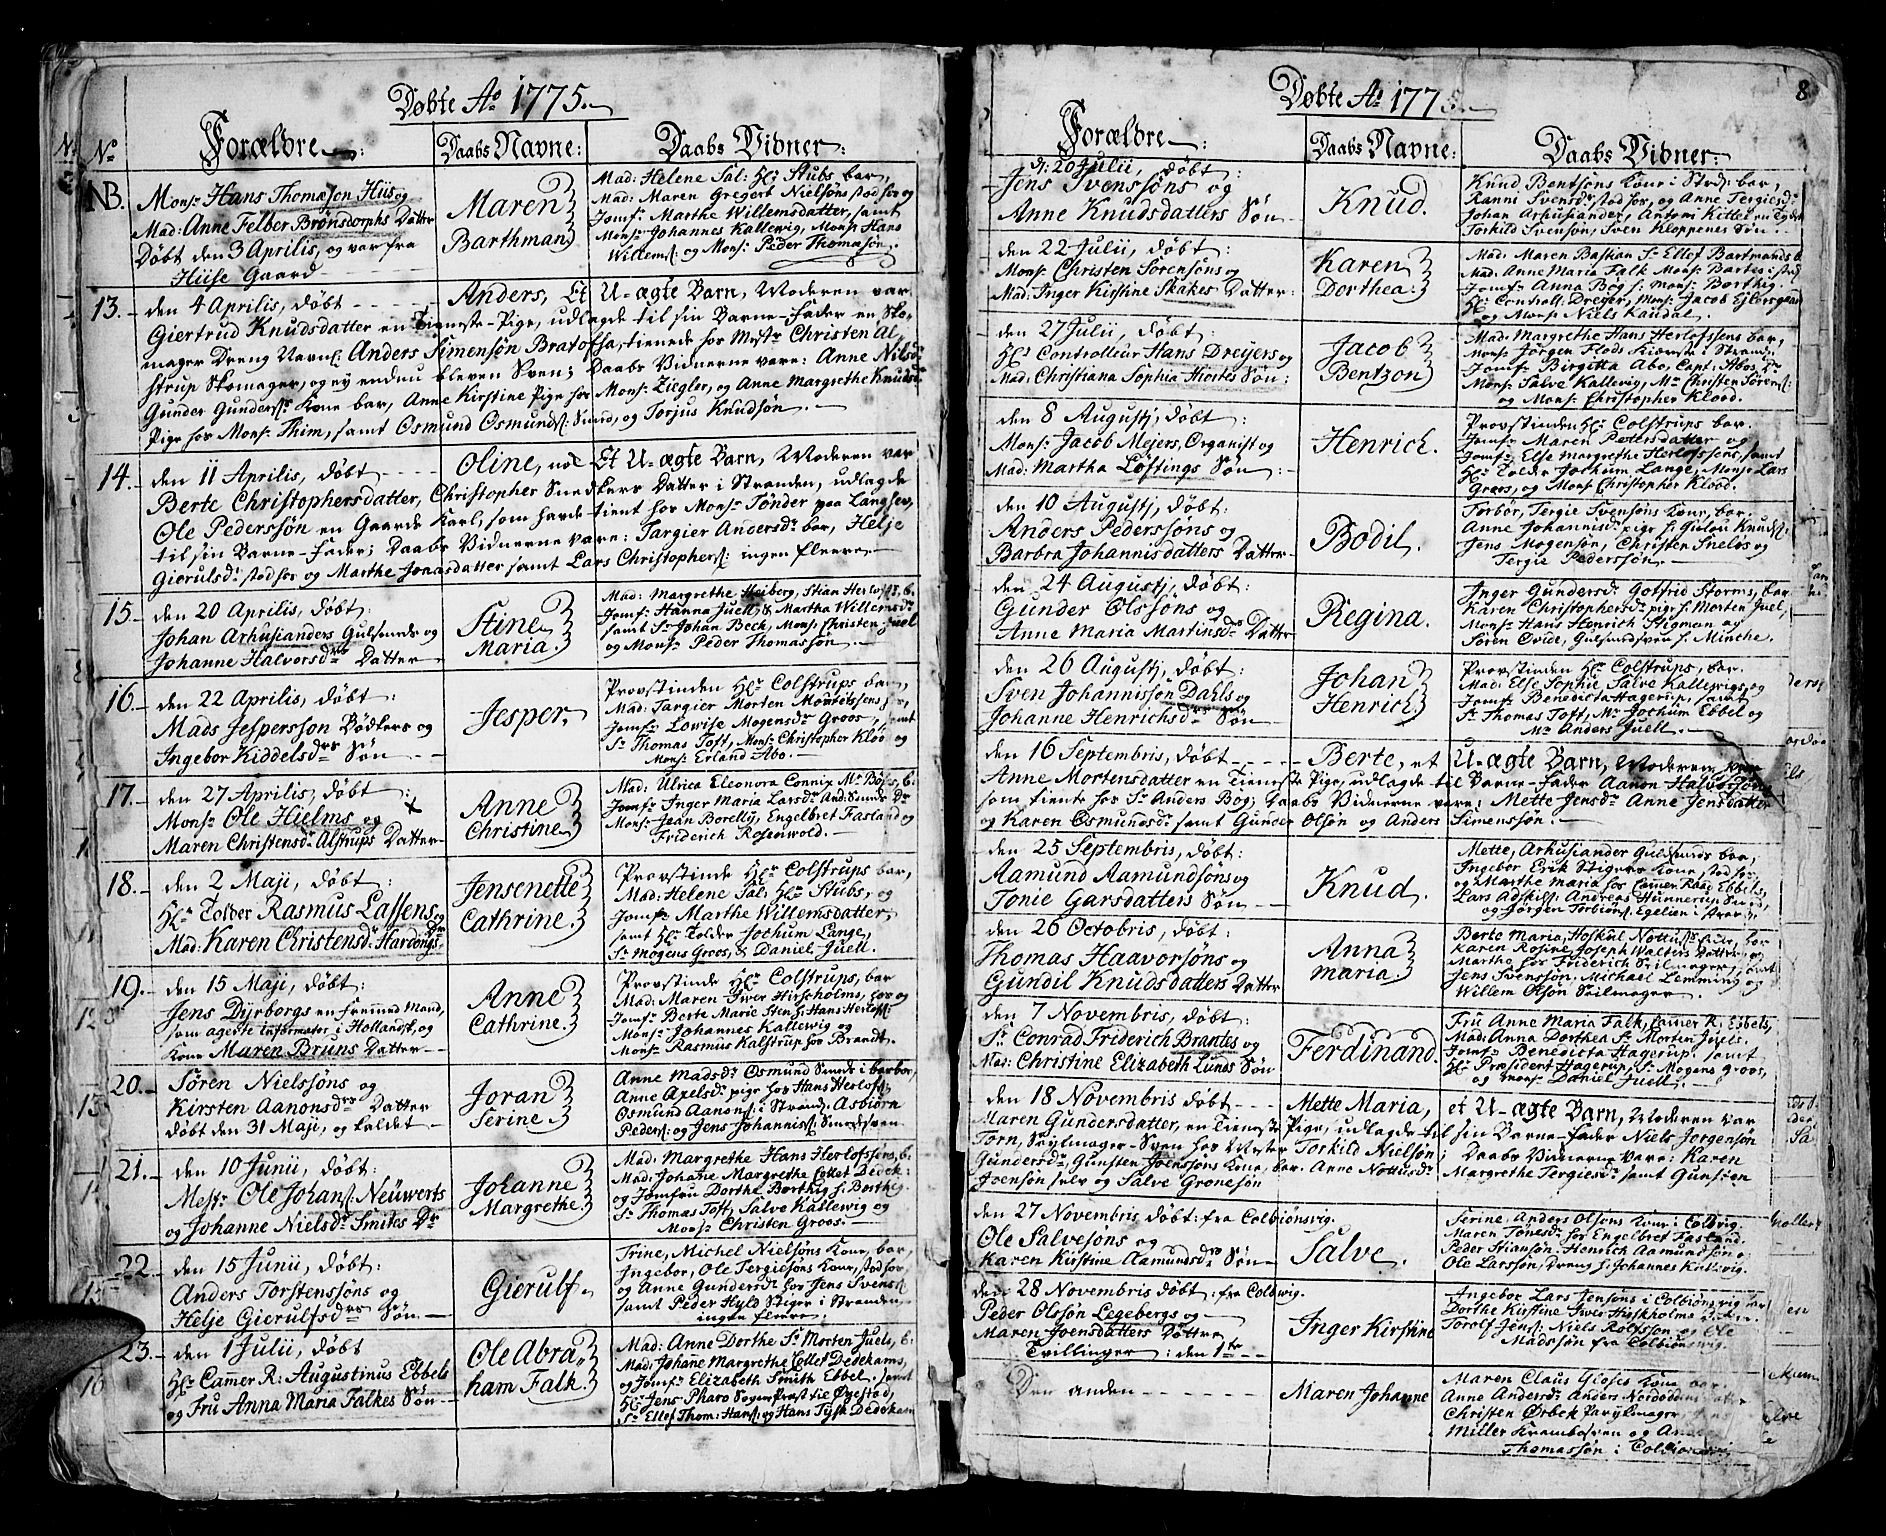 Døbte Ao 1775.
No
Forældre:
Daabs Navne:
Daabs Vidner:
NB.
Monsr Hans Thomæson Hiis og
Mad: Anne Felber Brønsdorphs Datter
Døbt den 3 Aprilis, og var fra
Hiise Gaard
Maren
Barthman.
Mad: Helene Sal: Hr Stubs bar,
Mad: Maren Gregort Nielsøns stod for og
Jomfr: Marthe Willemsdatter, samt
Monsr Johannes Kallewig, Monsr Hans
Willems: og Monsr Peder Thomasøn.
13. den 4 Aprilis, døbt - Anders, Et U-ægte Barn, Moderen var
Giertrud Knudsdatter en Tieneste-Pige, udlagde til sin Barne-Fader en Sko-
mager Dreng Navnl. Anders Simensøn Bratof, tienede for Mestr Christen Al-
strup Skomager, og ey endnu bleven Sven; Daabs Vidnerne vare: Anne Nilsdr
Gunder Gunderss: Kone bar, Anne Kirstine Pige for Monsr Ziegler, og Anne Margrethe Knudsdr
Pige for Monsr Thim, samt Osmund Osmunds: Smed, og Torjus Knudsøn.
14. den 11 Aprilis, døbt - Oline, Et U-ægte Barn, Moderen var
Berte Christophersdatter, Christopher Snedkers Datter i Stranden, udlagde
Ole Pederssøn en Gaards Karl, som havde tient for Monsr Tønder paa Langsev,
til sin Barne-Fader; Daabs Vidnerne vare: Targier Andersdr bar, Helje
Gierulsdr stod for og Marthe Jonasdatter samt Lars Christophers: ingen fleere.
15. den 20 Aprilis, døbt:
Johan Arhusianders Gulsmeds og
Johanne Halvorsdrs Datter
Stine
Maria.
Mad: Margrethe Heiberg, Stian Herlofs, b.
Jomfr: Hanna Juell, & Martha Willemsdr
samt Sr Johan Beck, Monsr Christen Juel
og Monsr Peder Thomassøn.
16. den 22 Aprilis, døbt:
Mads Jespersson Bødkers og
Ingebor Kiddelsdr Søn
Jesper.
Provstinden Hr Colstrups bar,
Mad: Targier Morten
Jomfr: Lowise Mogensdr Groos, samt
Sr Thomas Toft, Monsr Christopher Kloo og
Monsr Erland Abo.
17. den 27 Aprilis, døbt:
Monsr Ole Hielms og
Maren Christensdr Alstrups Datter
Anne
Christine
Mad: Ulrica Eleonora Connix Mr Boses, b:
Jomfr: Inger Maria Larsdr And: Smeds Dr
Monsr Jean Borelly, Engelbret Fasland og
Friderich Rosenwold.
18. den 2 Maji, døbt:
Hr Tolder Rasmus Lassens og
Mad: Karen Christensdr Hardongs Dr
Jensenette
Cathrine.
Provstinde Hr Colstrups bar,
Mad: Helene Sal: Hr Stubs, og
Jomfr: Marthe Willemsdatter,
samt Hr Tolder Jochum Lange,
Sr Mogens Groos, & Daniel Juell.
19. den 15 Maji, døbt:
Jens Dyrborgs en fremmed Mand,
som agerte informator i Hollandsk, og
Kone Maren Bruns Datter
Anne
Cathrine.
Provstinde Hr Colstrups, bar
Mad: Maren Iwer Hirscholms, for og
Jomfr: Berte Marie Stens; Hans Herlofs:
Monsr Johannes Kallewig og
Monsr Rasmus Kalstrup for Brandt.
20. Søren Nielssøns og
Kirsten Aanonsdrs Datter
døbt den 31 Maji, og kaldet
Joran
Serine.
Anne Madsdr Osmund Smeds i bar bor,
Anne Axelsdr pige for Hans Herlofs:
Osmund Aanons: i Strand: Asbiørn
Peders: og Jens Johanniss: Smedsven
21. den 10 Junii, døbt:
Mestr Ole Johans: Neüwerts
og Johanne Nielsdr Smites Dr
Johanne
Margrethe.
Mad: Margrethe Hans Herlofssøns, b:
Mad: Johane Margrethe Collet Dedek:
og Jomfru Dorthe Borthig f. Borthig
Sr Thomas Toft, Salve Kallewig og
Monsr Christen Groos.
22. den 15 Junii, døbt:
Anders Torstenssøns og
Helje Gierulfsdrs Søn
Gierulf
Trine, Michel Nielsøns Kone, bar,
Ingebor, Ole Tergiesøns Kone, stod for
og Anne Gundersdr for Jens Svens:
samt Peder Hyld Stiger i Stranden
ingen fleere.
23. den 1 Julii, døbt
Hr Camer R: Augustinus Ebbels
og Fru Anna Maria Falkes Søn
Ole Abra-
ham Falk.
Mad: Anne Dorthe Sr Morten Juels, b:
Mad: Johane Margrethe Collet Dedekams,
og Jomfr: Elizabeth Smith Ebbel. samt
Hr Jens Pharo Sogne Præst til Øyestad,
Sr Ellef Thom: Hans: og Hans Tysk Dedekam
Døbte Ao 1775.
8
Forældre:
Daabs Navne:
Daabs Vidner:
d: 20 Julii, døbt:
Jens Svenssøns og
Anne Knudsdatters Søn
Knud.
Knud Bentsøns Kone i Strd: bar,
Ranni Svensdr stod for, og Anne Tergiesdr
Johan Arhusiander, Antoni Kitter en Tydsk
Torkild Svensøn, Sven Kloppenes Søn.
den 22 Julii, døbt:
Monsr Christen Sørensøns og
Mad: Inger Kirstine Skakes Datter:
Karen
Dorthea.
Mad: Maren Bastian Sr Ellef Bartmands b
Mad: Anne Maria Falk Monsr Bartes i sted
Jomfr: Anna Bog f: Monsr Borthig.
Hr Controll: Dreyer, Monsr Jacob
og Monsr Niels Kaudal.
den 27 Julii, døbt:
Hr Controlleur Hans Dreyers og
Mad: Christiana Sophia Hiortes Søn:
Jacob
Bentzon
Mad: Margrethe Hans Herlofssens bar,
Monsr Jørgen Flods Kiæreste i Strand:
Jomfr: Birgitta Abo, Capt: Abos, Dr
Monsr Salve Kallevig, Mr Christen Sørens:
og Monsr Christopher Klood.
den 8 Augustj, døbt:
Monsr Jacob Mejers, Organist og
Mad: Martha Løftings Søn
Henrich.
Provstinden Hr Colstrups bar.
Jomfr: Maren Pettersdatter og
Jomfr: Else Margrethe Herlofssens, samt
Hr Tolder Jochum Lange, Monsr Lars
Groos, og Monsr Christopher Klood.
den 10 Augustj, døbt:
Anders Pederssøns og
Barbra Johannisdatters Datter
Bodil.
Torbor, Tergie Svensøns Kone, bar.
Anne Johannisdr pige f. Gutou Knuds:
Jens Mogensøn, Christen Sneløs og
Tergie Pederssøn.
den 24 Augustj, døbt:
Gunder Olssøns og
Anne Maria Martinsdrs Datter
Regina.
Inger Gundersdr Gotfrid Storms, bar
Karen Christophersdr pige f. Morten Juel,
Monsr Hans Henrich Stigman og
Søren Ovide, Gulsmedsvend f. Minche.
den 26 Augustj, døbt:
Sven Johannissøn Dahls og
Johanne Henrichsdrs Søn
Johan
Henrich
Provstinden Hr Colstrups, bar.
Mad: Else Sophie Salve Kallewigs, og
Jomfr: Benedicta Hagerup, samt
Sr Thomas Toft, Mr Jochum Ebbel og
Mr Anders Juell.
den 16 Septembris, døbt - Berte, et U-ægte Barn, Moderen var
Anne Mortensdatter en Tieneste Pige, udlagde til Barne-Fader Aanon Halvorsøn
som tiente for Sr Anders Bog; Daabs Vidnerne vare: Mette Jensdr Anne Jensdatter
og Karen Osmundsdr samt Gunder Olsøn og Anders Simenssøn.
den 25 Septembris, døbt:
Aamund Aamundsøns og
Tonie Garsdatters Søn
Knud.
Mette, Arhusiander Guldsmeds bar,
Ingebor Erik Stigers Kone stod for
og Marthe Maria for Camer Raad Ebbels,
Lars Adskils: Andreas Hunnerup Smed,
og Jørgen Torbiøns: Egelien i
den 26 Octobris, døbt:
Thomas Haavorsøns og
Gundil Knudsdatters Datter
Anna
maria.
Berte Maria, Hoskul Nottus: Kone, bar
Karen Rosine Joseph Walters Datter og
Martha for Friderich Seilmager, samt
Jens Svensøn, Michael Lemming og
Willem Olsøn Seilmager.
den 7 Novembris, døbt:
Sr Conrad Friderich Brantes og
Mad: Christine Elizabeth Lunds Søn
Ferdinand.
Fru Anne Maria Falk, Camer R. Ebbels,
Mad: Anna Dorthea Sr Morten Juels.
Jomfr: Benedicta Hagerup, samt
Hr Præsident Hagerup, Sr Mogens Groos,
og Monsr Daniel Juell.
den 18 Novembris døbt - Mette Maria, et U-ægte Barn, Moderen var
Maren Gundersdatter, en Tieneste Pige, udlagde til sin Barne-Fader Niels Jørgensøn
Torn, Seylmager-Sven hos Mester Torkild Nielsøn; Daabs Vidnerne vare: Karen
Gundersdr, Gunsten Joenssøns Kone, bar. Anne Nottusdr Margrethe Tergiesdr samt Gunsten
Joensøn selv og Salve Gronesøn
den 27 Novembris døbt: fra Colbiønsvig.
Ole Salvesøns og
Karen Kirstine Aamundsdrs Søn
Salve.
Serine, Anders Olsøns Kone i Colbvig.
Maren Tønesdr for Engelbret Fasland.
Peder Stiansøn, Henrich Aamundsøn og
Ole Larssøn, dreng f. Johannes Kallevig.
den 28 Novembris døbt: fra Colbvig.
Peder Olsøn Legebergs og
Maren Joensdatters Datter
Tvillinger: den 1te
Inger Kirstine
Ingebor Lars Jensøns i Colbiønsvig bar
Dorthe Kirstine Iwer Hirscholms
Torolf Jens: Niels Rolfssøn og Ole
Madssøn fra Colbiønsvig.
Den anden
Maren Johanne
Maren Claus Gloses Kone bar.
Anne Andersdr Anders Nordodden
Christen Ørbek Parykmager,
Miller Krambosven og
Thomassøn i Colbiønsvig